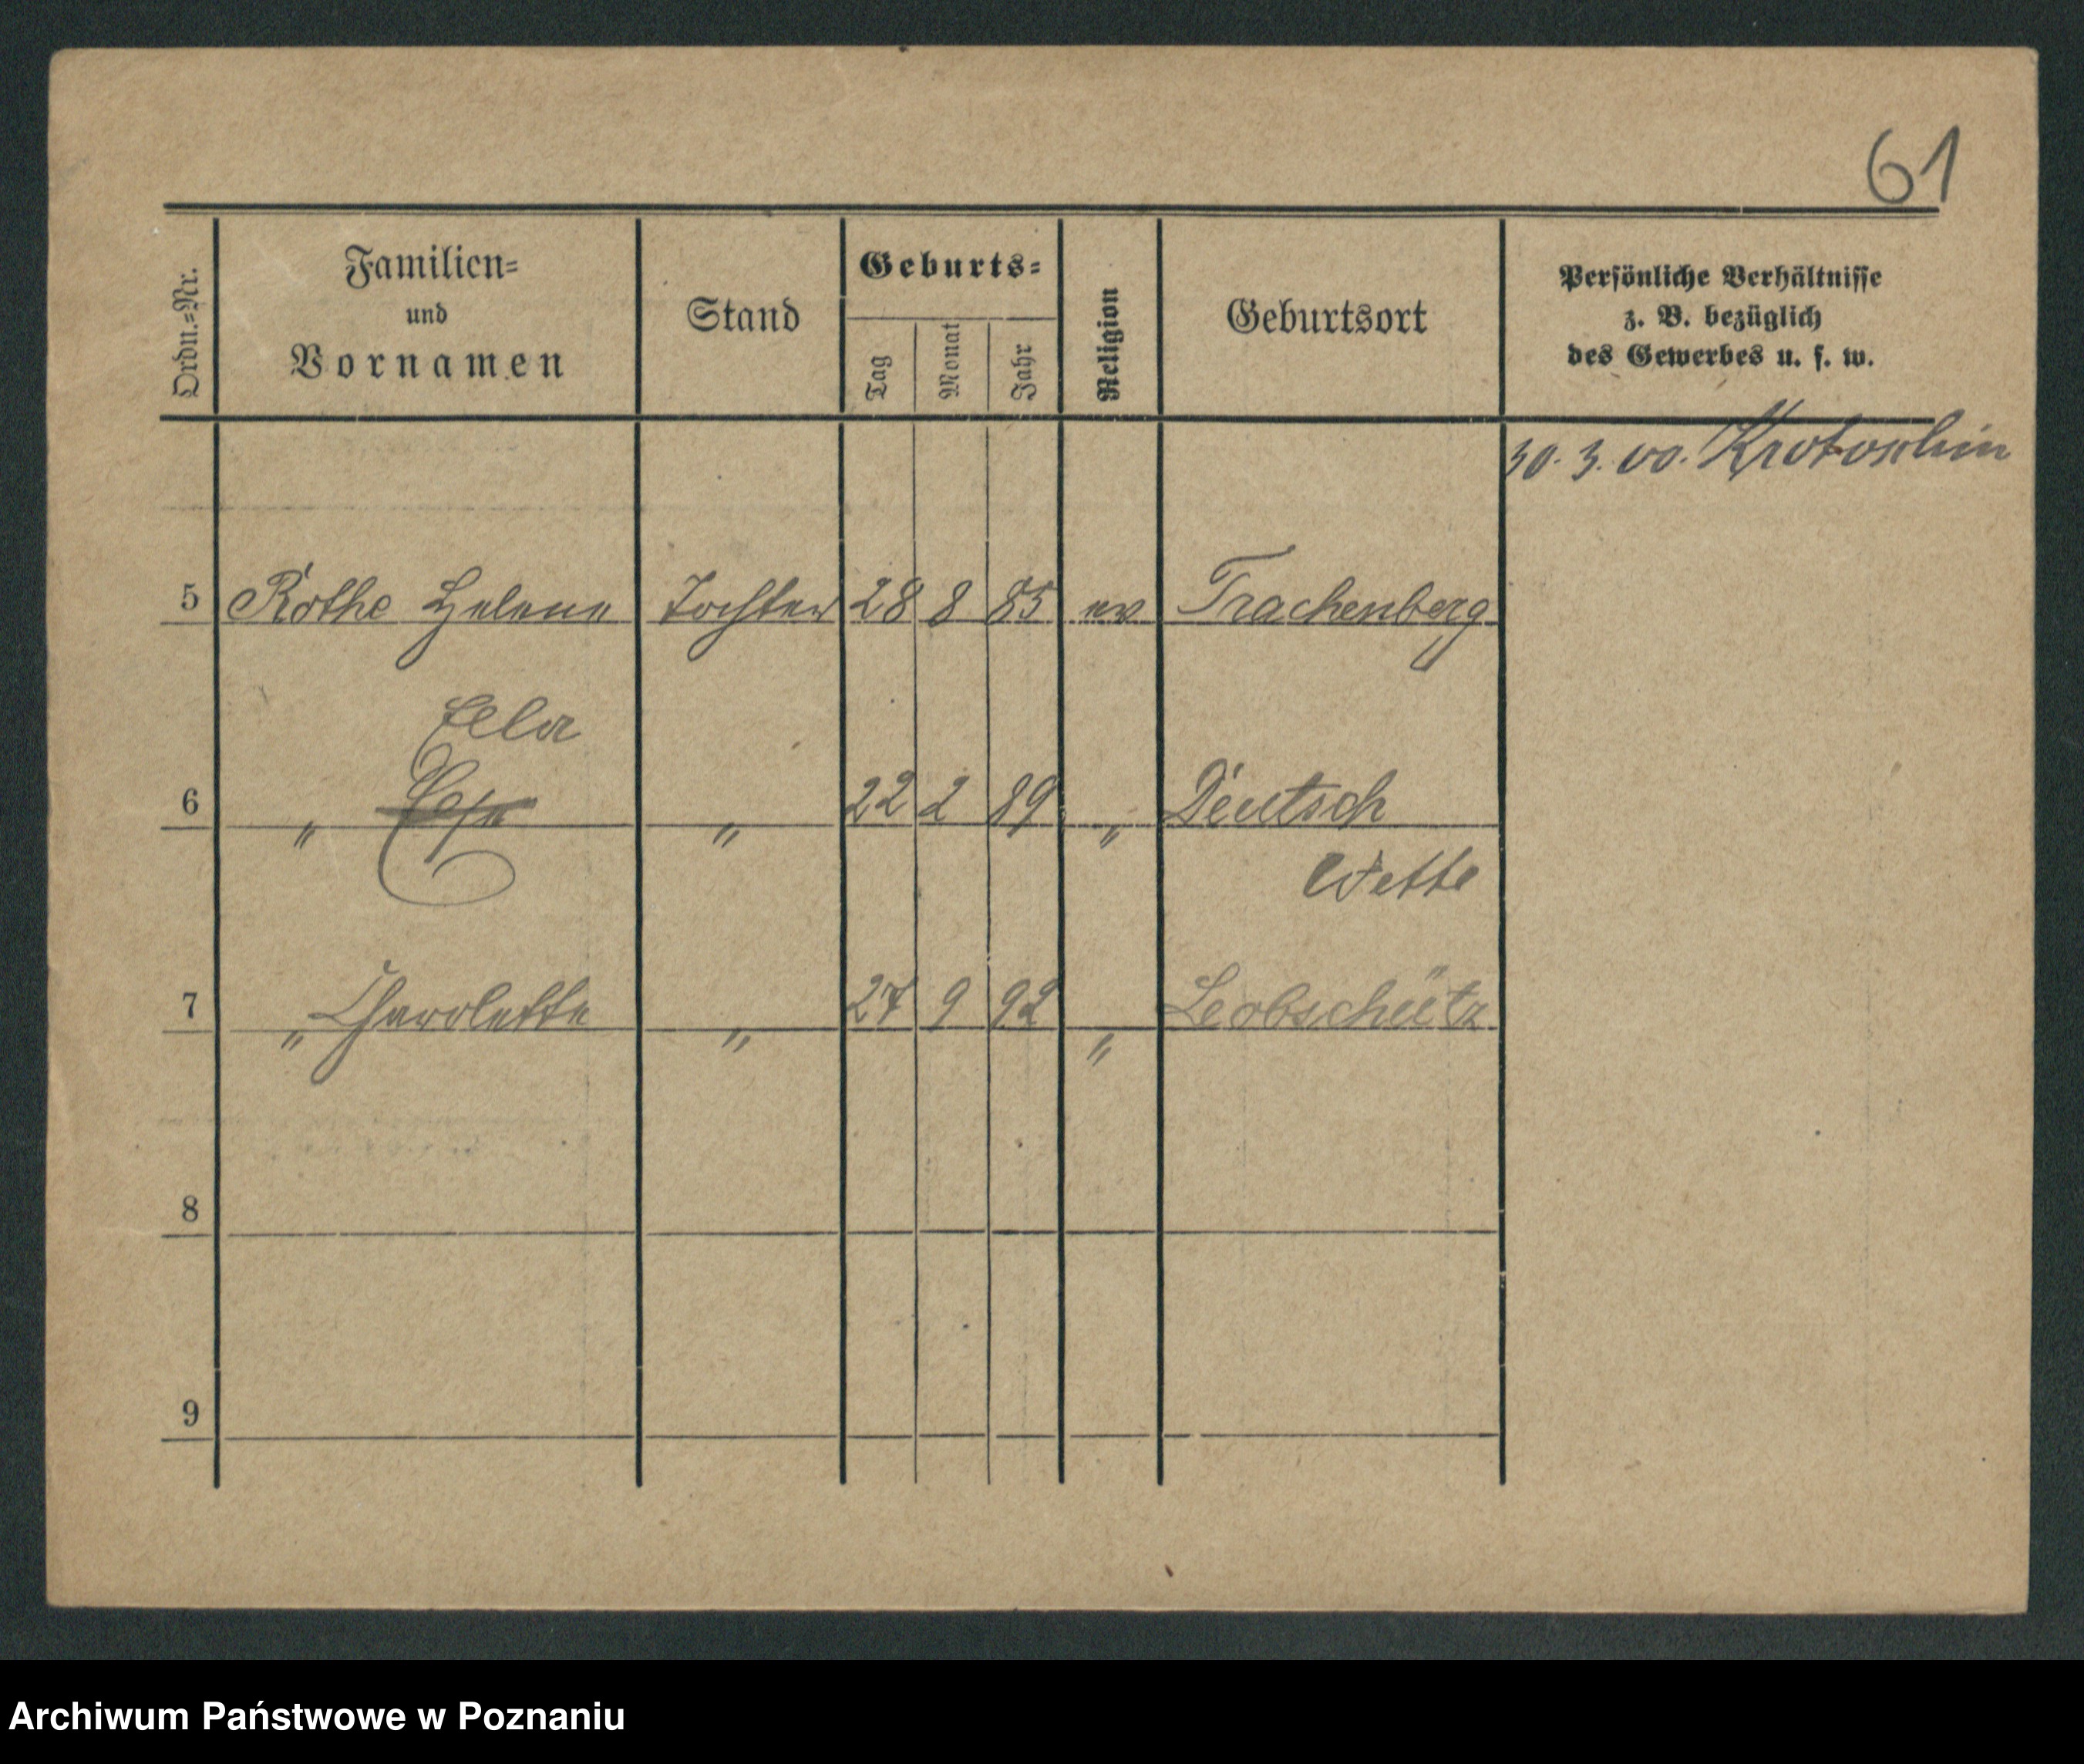 61
Ordn.=Nr.
Familien=
und
Vornamen
Stand
Geburts=
Tag
Monat
Jahr
Religion
Geburtsort
Persönliche Verhältnisse
z. B. bezüglich
des Gewerbes u. s. w.
30. 3. 00. Krotoschin
5 Rothe Helene Tochter 28 8 85 ev Trachenberg
Ella
6 " " 22 2 89 " Deutsch
Wette
7 " Charolette " 27 9 92 " Leobschütz
8
9
Archiwum Państwowe w Poznaniu